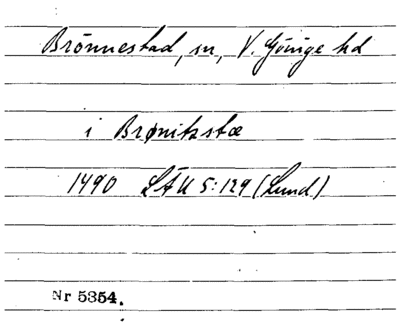 Brönnestad, sn, V. Göinge hd
i Brønitzstæ
1490 LÄU 5:129 (Lund)
Nr 5354.